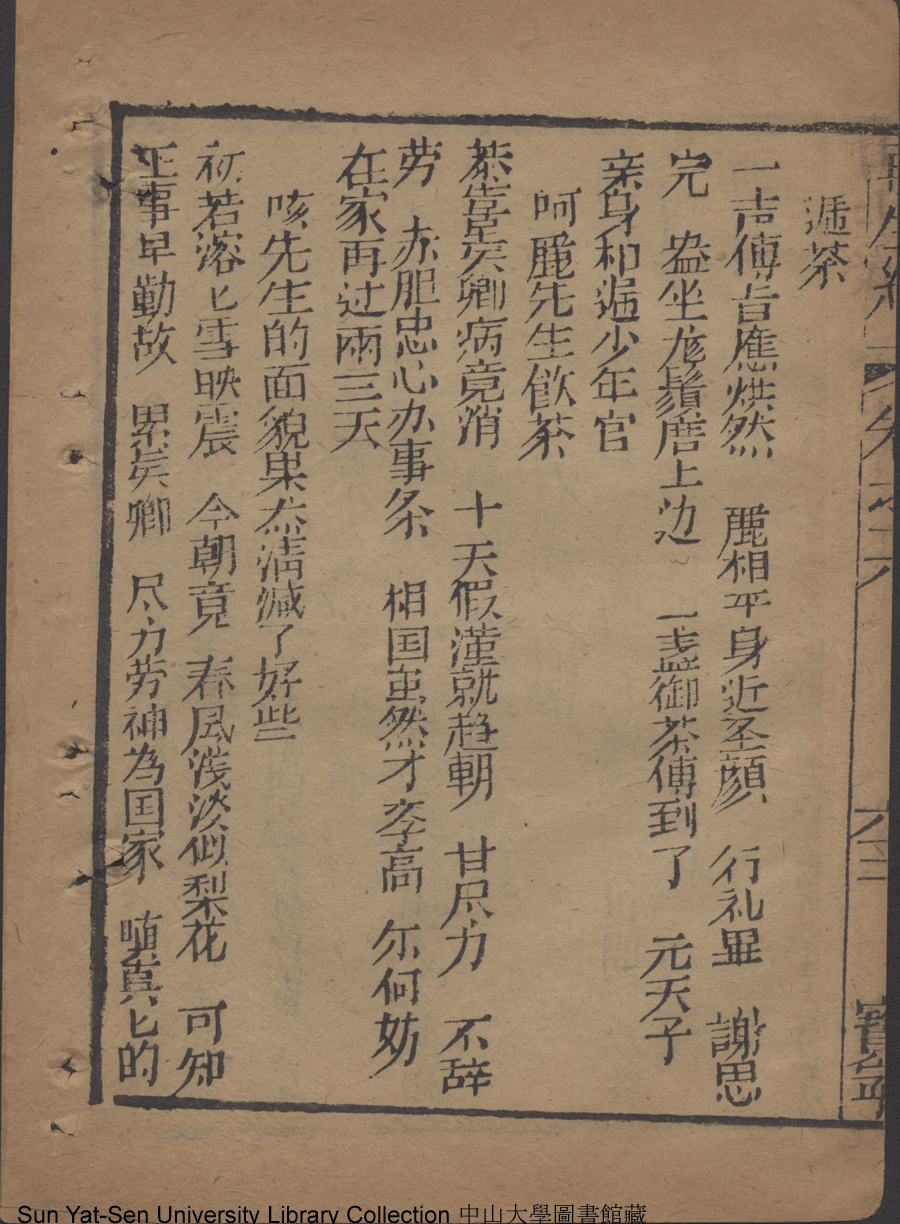 遞茶
一声傳旨應烘然 麗相平身近圣顔 行礼畢 謝恩
完 盎坐龙鬚席上边 一盏御茶傳到了 元天子
亲身和遞少年官
呵麗先生飲茶
恭喜吴卿病竟消 十天假滿就趋朝 甘尽力 不辞
劳 赤胆忠心办事条 相国虽然才李高 尔何妨
在家再过兩三天
咳先生的面貌果然清减了好些
初若溶匕雪映震 今朝竟 春风浅淡似梨花 可知
正事早勤故 累吴卿 尽力劳神為国家 啃真匕的
寶華
Sun Yat-Sen University Library Collection 中山大學圖書館藏